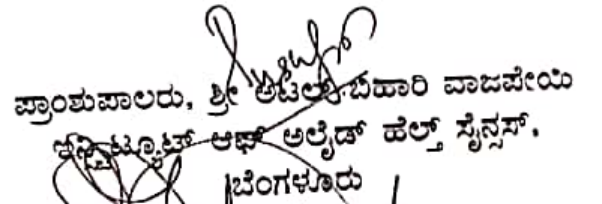 ಪ್ರಾಂಶುಪಾಲರು, ಶ್ರೀ ಅಟಲ್ ಬಿಹಾರಿ ವಾಜಪೇಯಿ
ಇನ್ಸ್ಟಿಟ್ಯೂಟ್ ಆಫ್ ಅಲೈಡ್ ಹೆಲ್ತ್ ಸೈನ್ಸಸ್,
ಬೆಂಗಳೂರು